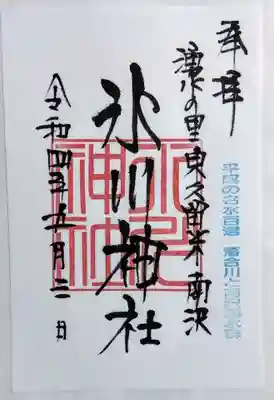 奉拝
湧水の里 東久留米 南沢
平成の名水百選 落合川と南沢湧水群
氷川神社
氷川神社
令和四年五月三日